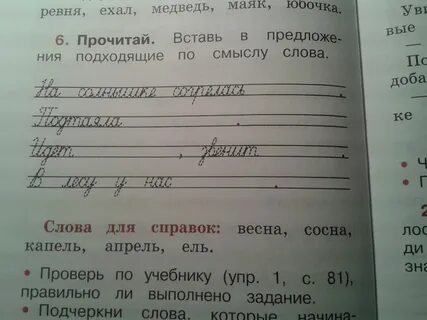 ревня, ехал, медведь, маяк, юбочка.
6. Прочитай. Вставь в предложе-
ния подходящие по смыслу слова.
На солнышке согрелась .
Подтаяла .
Идет , звенит .
В лесу у нас .
Слова для справок: весна, сосна,
капель, апрель, ель.
• Проверь по учебнику (упр. 1, с. 81),
правильно ли выполнено задание.
• Подчеркни слова, которые начина-
Уви
вые
—
По
доба
ке —
•
•
2
лос
ди
зна